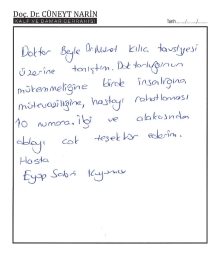 Doç. Dr. CÜNEYT NARİN
KALP VE DAMAR CERRAHİSİ
Tarih ..../..../....
Doktor Beyle Dr. Murat Kılıc tavsiyesi
üzerine tanıştım. Doktorluğunun
mükemmeliğine birde insanlığına
mütevaziliğine, hastayı rahatlaması
10 numara. İlgi ve alakasından
dolayı çok teşekkür ederim.
Hasta
Eyüp Sabri